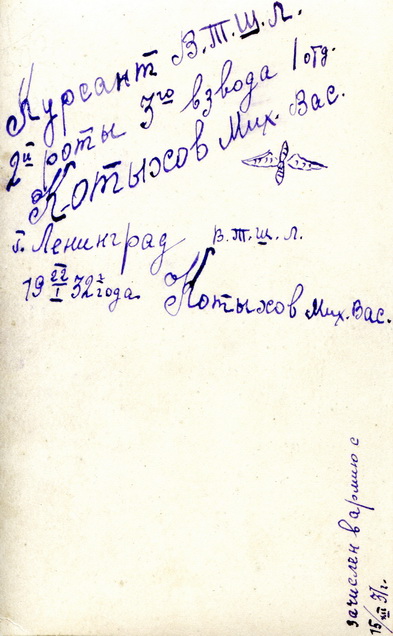 Курсант В.Т.Ш.Л.
2й роты 3го взвода 1 отд.
Котыхов Мих. Вас.
г. Ленинград В.Т.Ш.Л.
19 22/I 32х года.
Котыхов Мих. Вас.
зачислен в армию с
15/XII 31г.